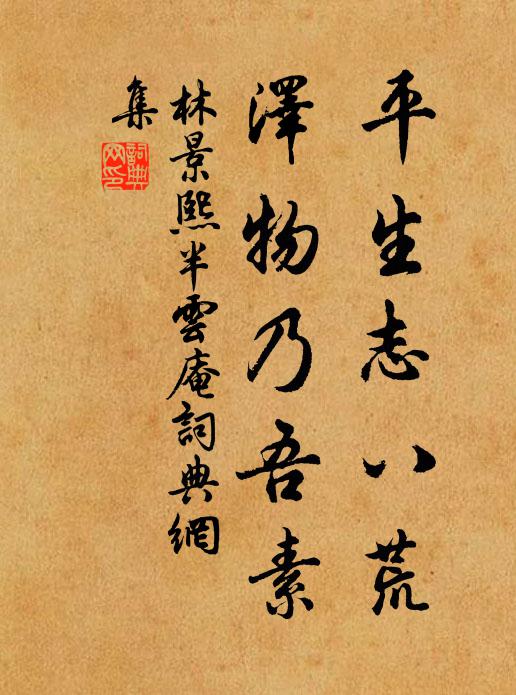 平生志八荒
澤物乃吾素
林景熙半雲庵詞典網
集
詞典網印